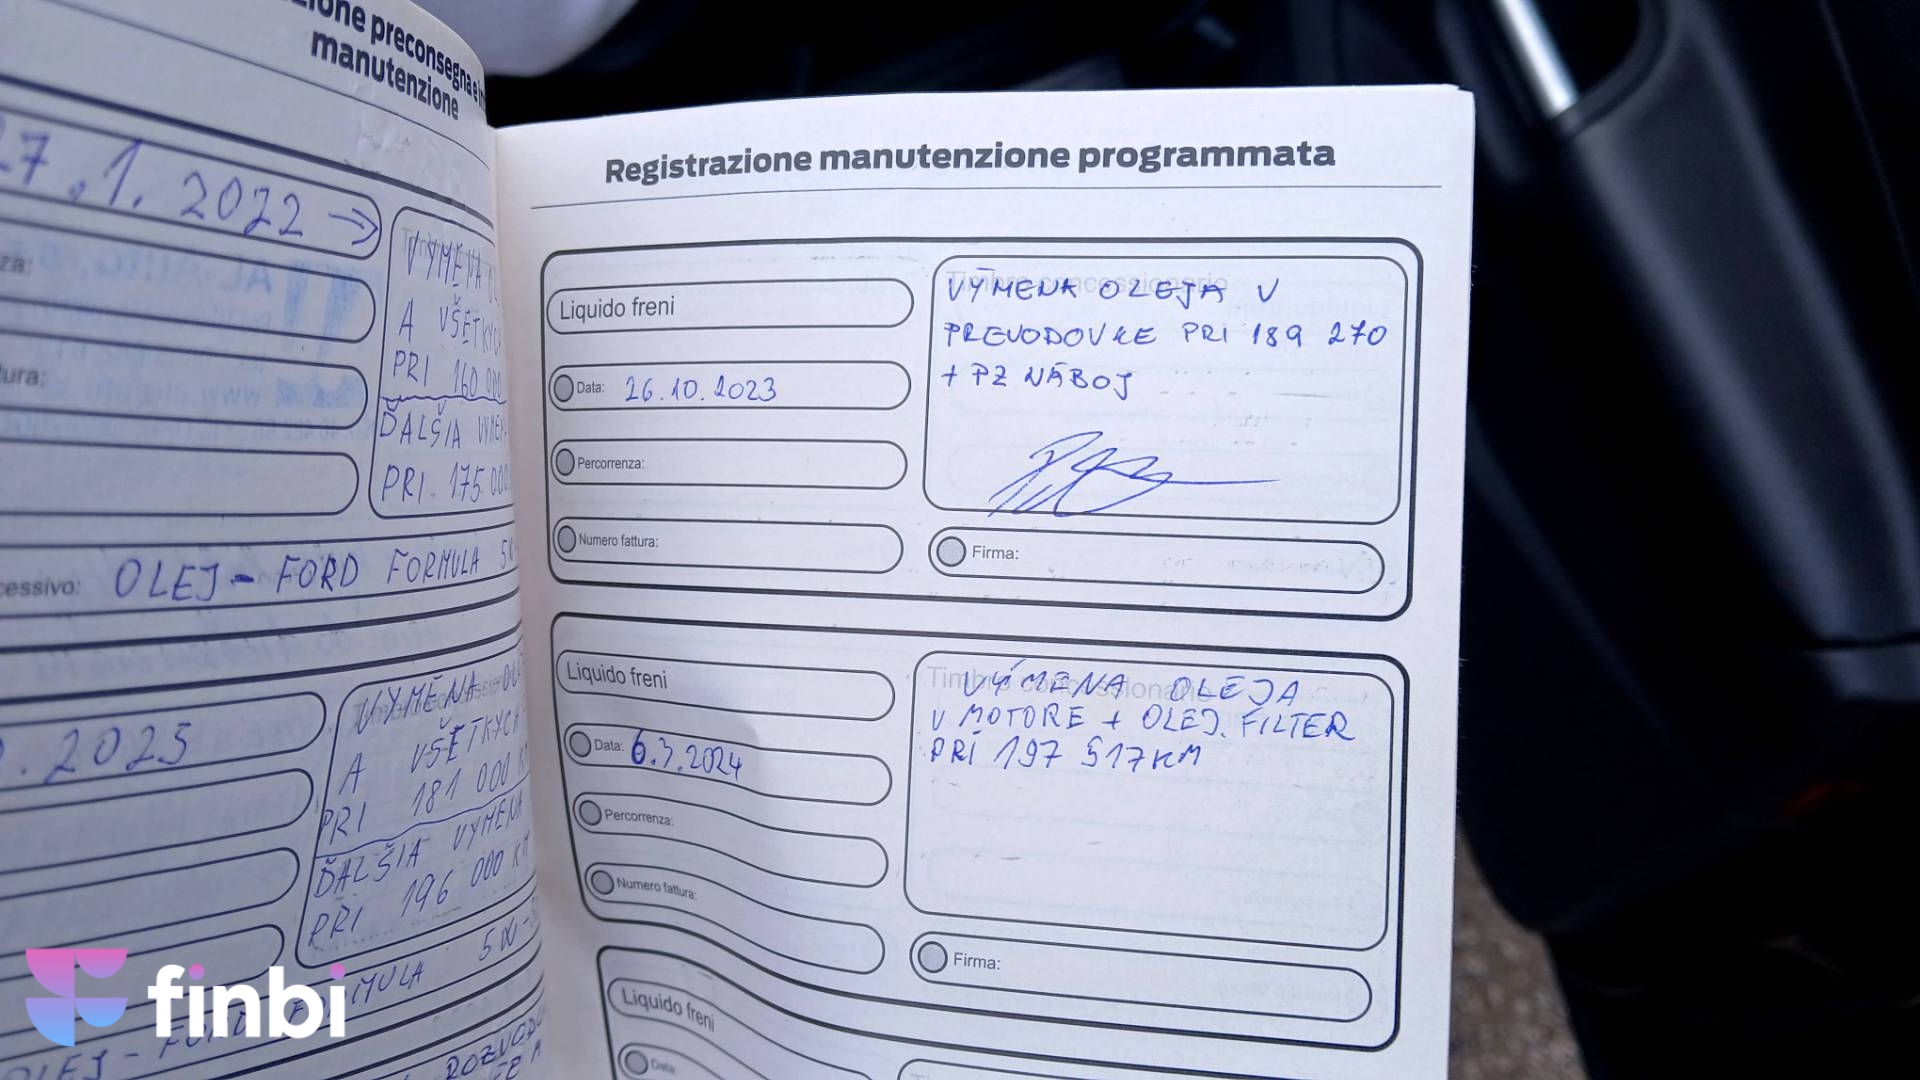 manutenzione
27.1.2022 →
VÝMENA
A VŠETKYCH
PRI 160 000
ĎALŠIA VÝMEN
PRI 175 000
OLEJ - FORD FORMULA
2023
VÝMENA
A VŠETKYCH
PRI 181 000 K
ĎALŠIA VÝMENA
PRI 196 000 KM
finbi
Registrazione manutenzione programmata
Liquido freni
Data: 26.10.2023
Percorrenza:
Numero fattura:
Timbro concessionario
VÝMENA OLEJA V
PREVODOVKE PRI 189 270
+ PZ NÁBOJ
Firma:
Liquido freni
Data: 6.3.2024
Percorrenza:
Numero fattura:
Timbro concessionario
VÝMENA OLEJA
V MOTORE + OLEJ. FILTER
PRI 197 517KM
Firma:
Liquido freni
Data